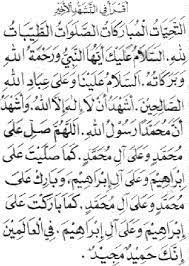 أقرأ في التشهد الأخير
التَّحِيَّاتُ الْمُبَارَكَاتُ الصَّلَوَاتُ الطَّيِّبَاتُ
لِلَّهِ. السَّلَامُ عَلَيْكَ أَيُّهَا النَّبِيُّ وَرَحْمَةُ اللَّهِ
وَبَرَكَاتُهُ. السَّلَامُ عَلَيْنَا وَعَلَى عِبَادِ اللَّهِ
الصَّالِحِينَ. أَشْهَدُ أَنْ لَا إِلَهَ إِلَّا اللَّهُ وَأَشْهَدُ
أَنَّ مُحَمَّدًا رَسُولُ اللَّهِ. اللَّهُمَّ صَلِّ عَلَى
مُحَمَّدٍ وَعَلَى آلِ مُحَمَّدٍ. كَمَا صَلَّيْتَ عَلَى
إِبْرَاهِيمَ وَعَلَى آلِ إِبْرَاهِيمَ. وَبَارِكْ عَلَى
مُحَمَّدٍ وَعَلَى آلِ مُحَمَّدٍ. كَمَا بَارَكْتَ عَلَى
إِبْرَاهِيمَ. وَعَلَى آلِ إِبْرَاهِيمَ. فِي الْعَالَمِينَ
إِنَّكَ حَمِيدٌ مَجِيدٌ.